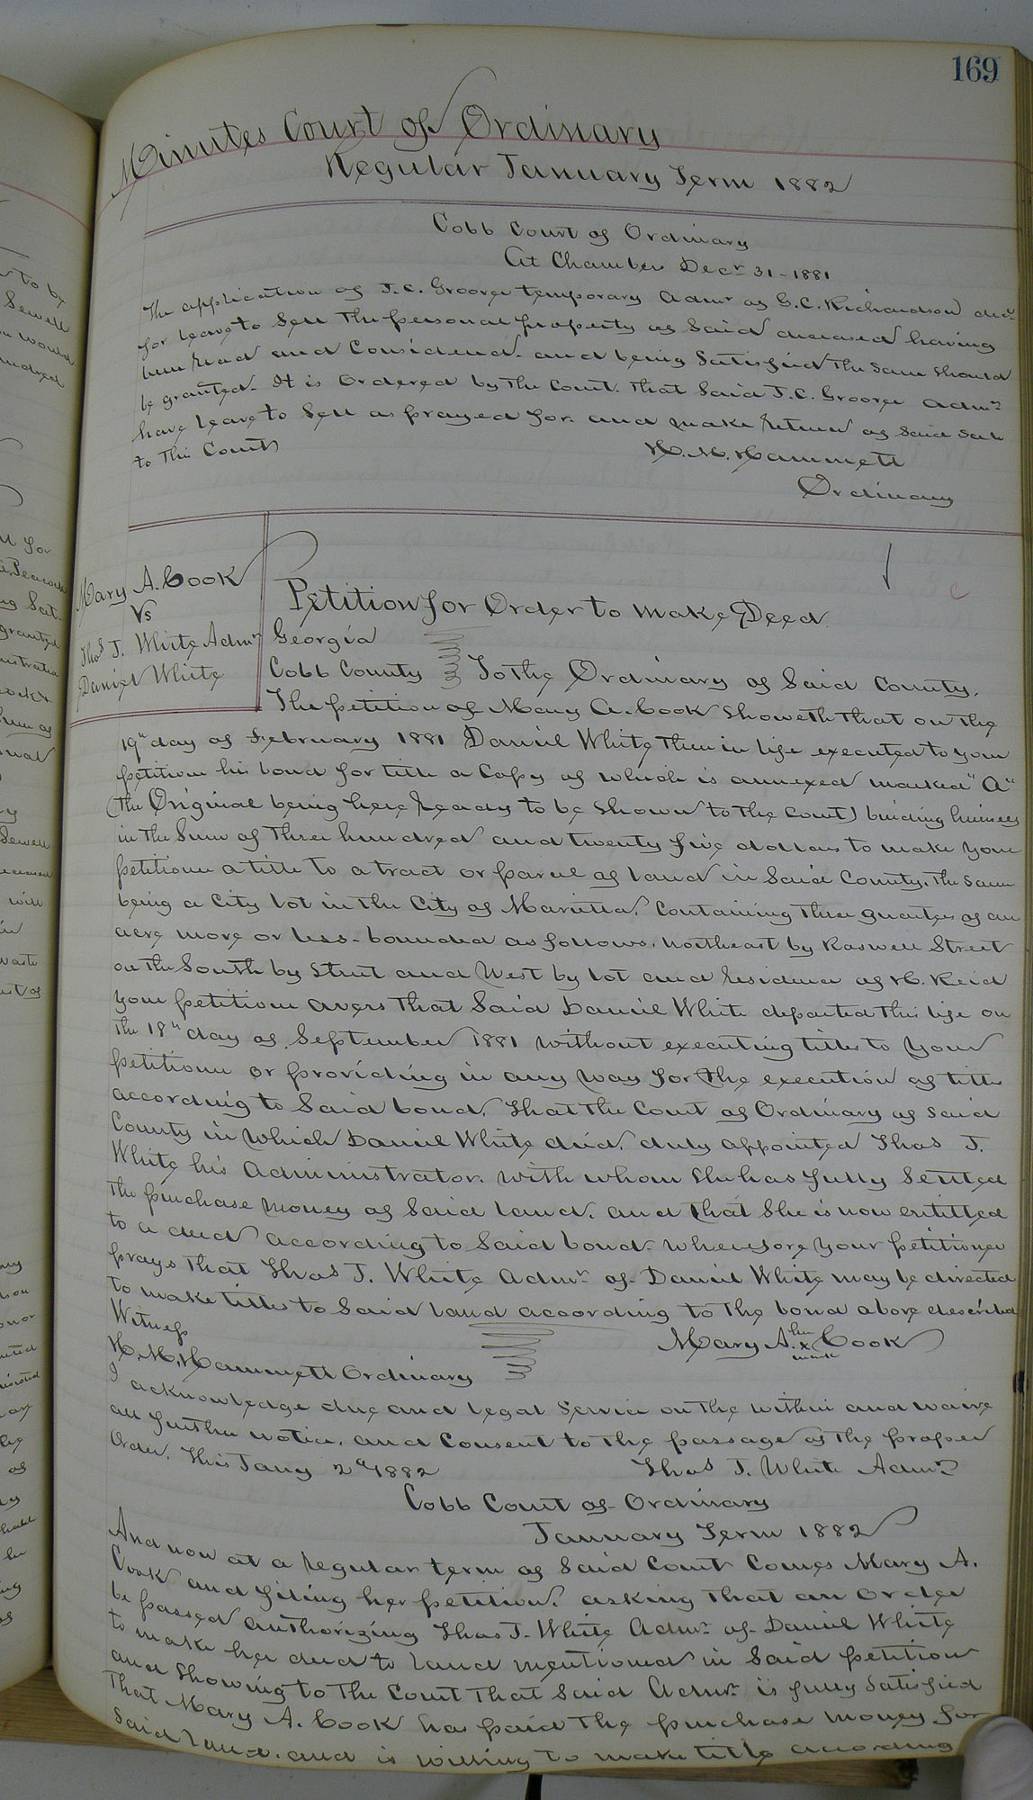 169
Minutes Court of Ordinary
Regular January Term 1882
Cobb Court of Ordinary
At Chambers Decr 31-1881
The application of J.C. Groover temporary Admr of G.C. Richardson decd
for leave to Sell The personal property of Said deceased having
been read and Considered. and being Satisfied The Same Should
be granted. It is Ordered by The Court. That Said J.C. Groover Admr
have leave to Sell as prayed for. and make return of Said Sale
to This Court
H. M. Hammett
Ordinary
Mary A. Cook
Vs
Thos J. White Admr
Daniel White
Petition for Order to make Deed
Georgia
Cobb County To The Ordinary of Said County.
The petition of Mary A. Cook Showeth That on The
19th day of February 1881 Daniel White Then in life executed to your
petitioner his bond for title a Copy of which is annexed marked "A"
(The Original being here ready to be Shown to The Court) binding himself
in the Sum of Three hundred and twenty five dollars to make your
petitioner a title to a tract or parcel of land in Said County. The Same
being a City lot in the City of Marietta. Containing Three quarters of an
acre more or less. bounded as follows. Northeast by Roswell Street
on The South by Street and West by lot and residence of H. Reid
your petitioner avers That Said Daniel White departed This life on
The 18th day of September 1881 without executing titles to your
petitioner or providing in any way for The execution of titles
according to Said bond. That The Court of Ordinary of Said
County in which Daniel White died, duly appointed Thos J.
White his Administrator. with whom She has fully Settled
The purchase money of Said land. and That She is now entitled
to a deed according to Said bond. Wherefore your petitioner
prays That Thos J. White Admr of Daniel White may be directed
to make titles to Said land according to The bond above described
Witness
Mary A. her x mark Cook
H. M. Hammett Ordinary
I acknowledge due and legal Service on The within and waive
all further notice. and Consent to The passage of The proper
Order. This Jany 2d 1882
Thos J. White Admr
Cobb Court of Ordinary
January Term 1882
And now at a regular term of Said Court Comes Mary A.
Cook and filing her petition. asking That an Order
be passed authorizing Thos J. White Admr of Daniel White
to make her deed to land mentioned in Said petition
and Showing to The Court That Said Admr is fully Satisfied
That Mary A. Cook has paid The purchase money for
Said land. and is willing to make title according